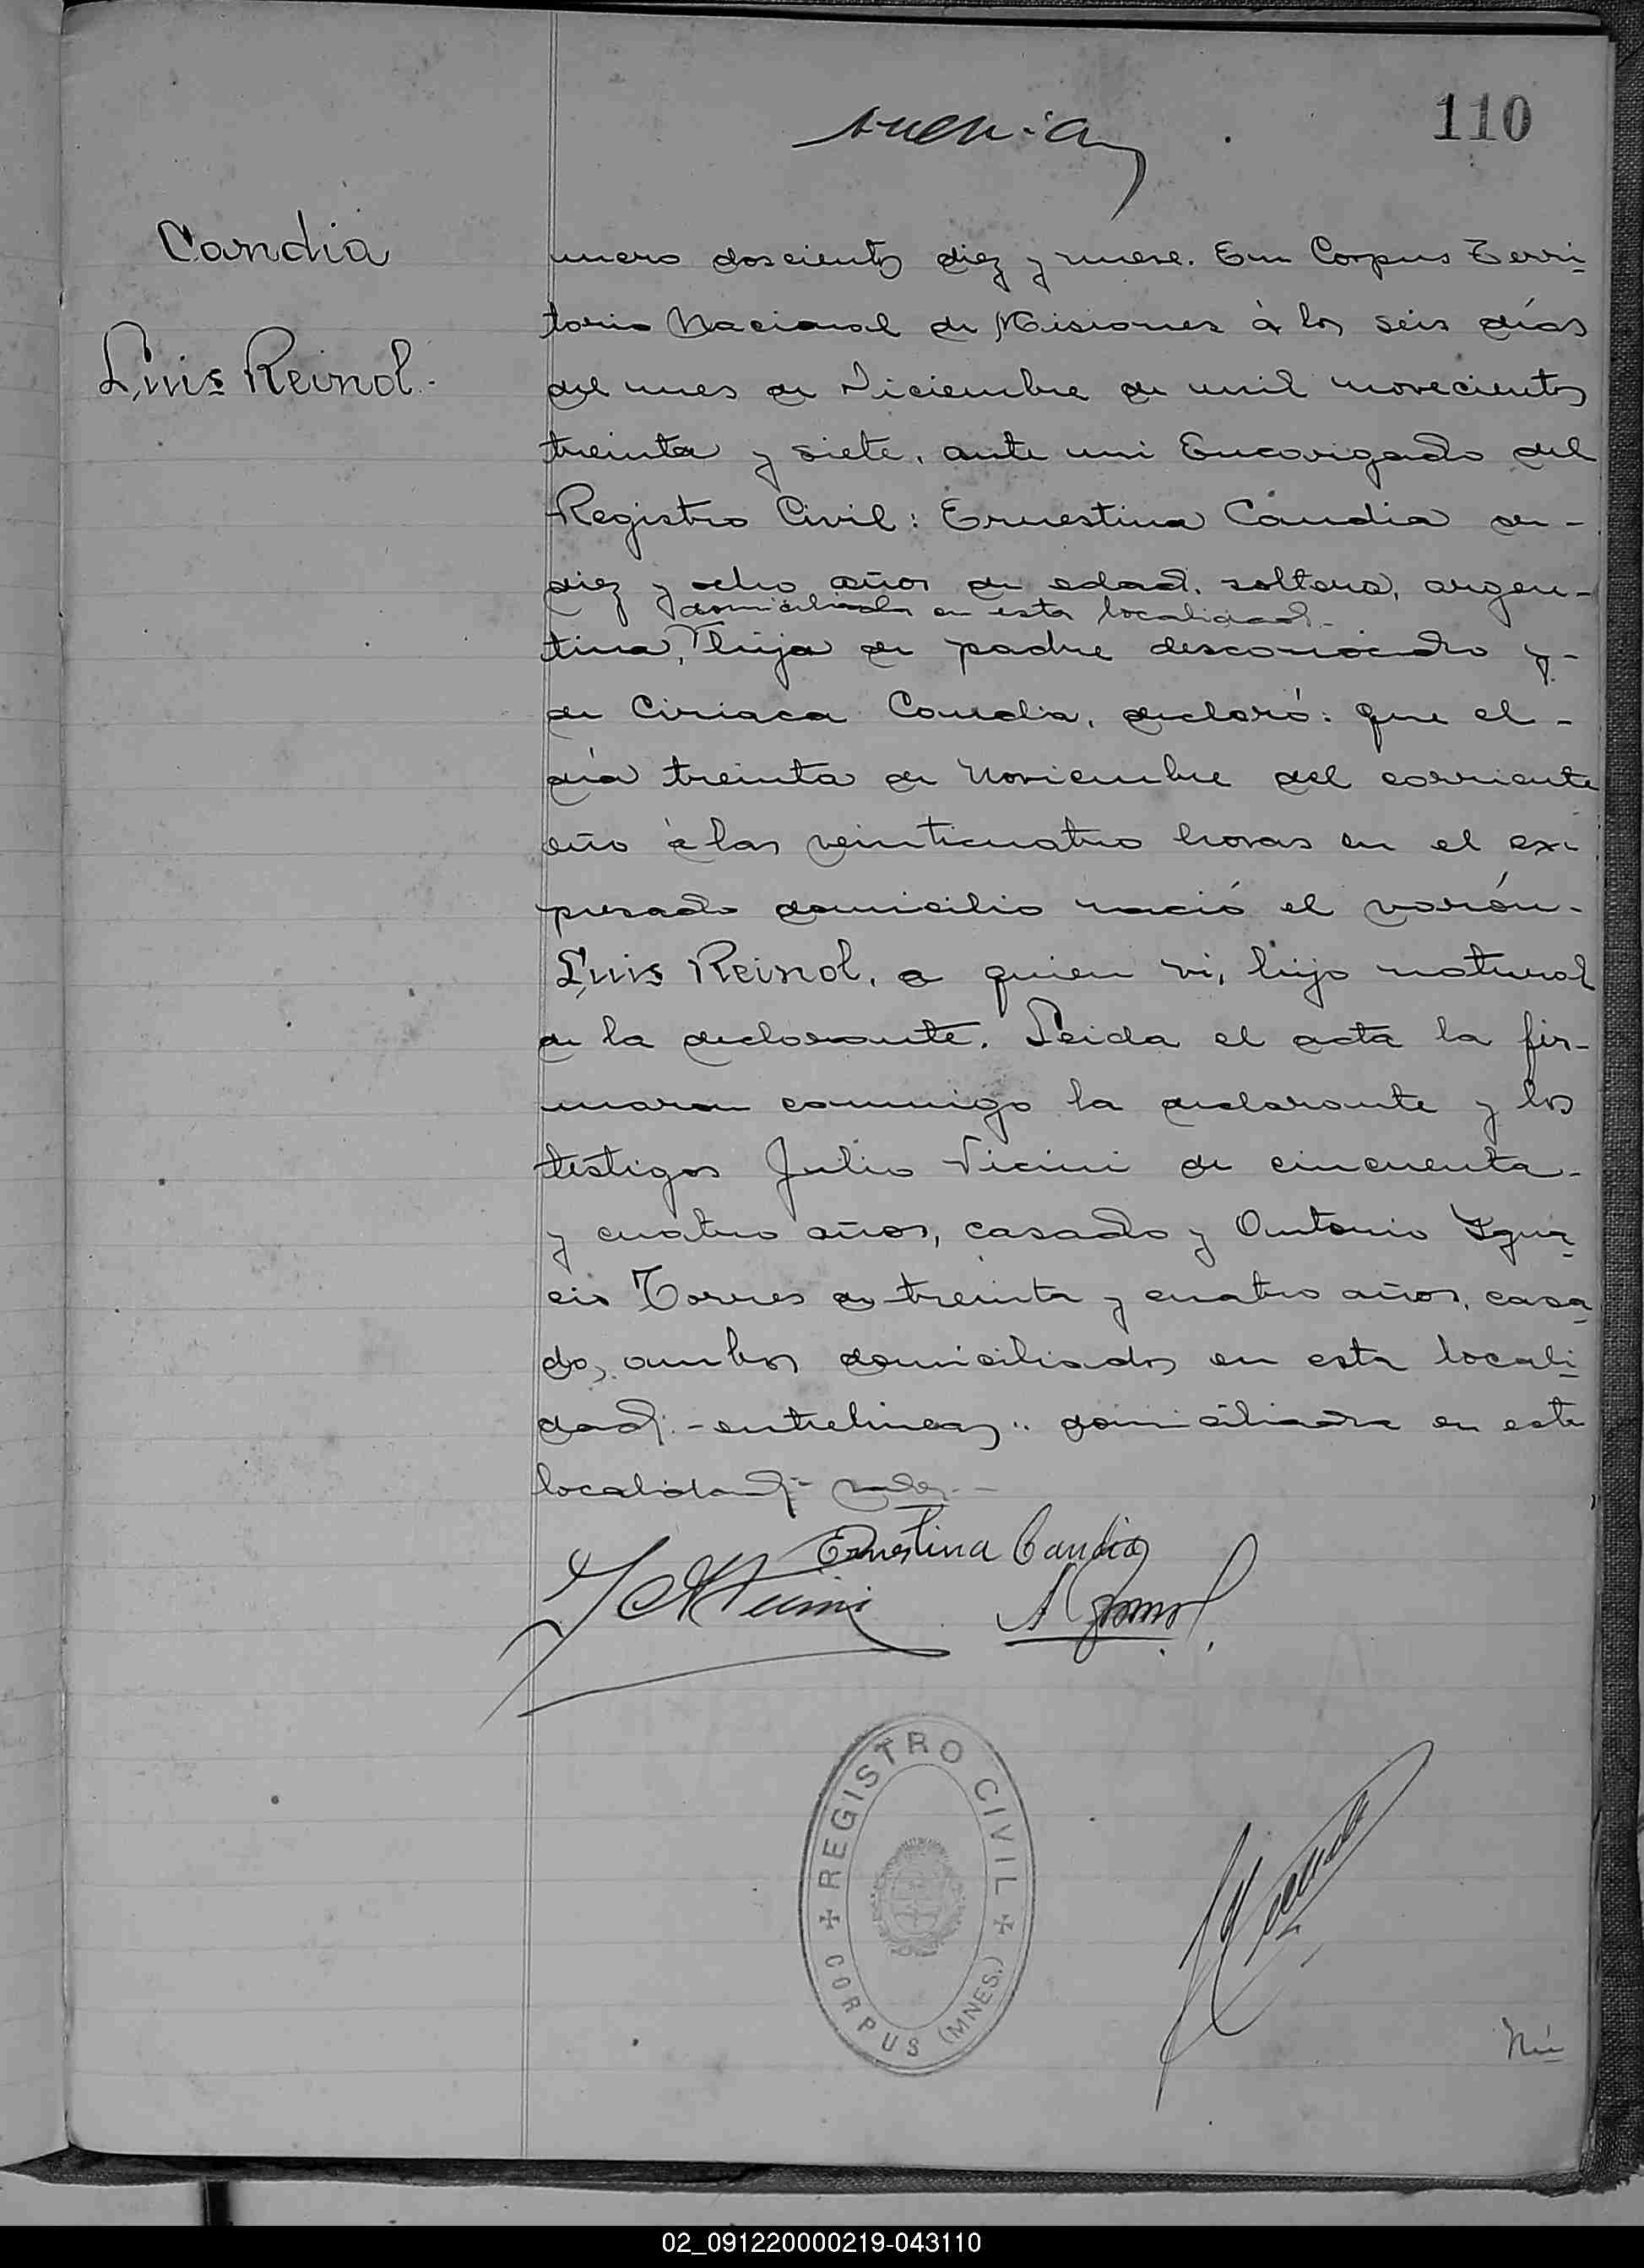 110
Candia
Luis Reinol.
mero doscientos diez y nueve. En Corpus Terri-
torio Nacional de Misiones á los seis días
del mes de Diciembre de mil novecientos
treinta y siete, ante mi Encargado del
Registro Civil: Ernestina Candia de -
diez y ocho años de edad, soltera, argen-
domiciliada en esta localidad -
tina, hija de padre desconocido y -
de Ciriaca Candia, declaró: que el -
día treinta de Noviembre del corriente
año á las veinticuatro horas en el ex-
presado domicilio nació el varón -
Luis Reinol, a quien vi, hijo natural
de la declarante. Leida el acta la fir-
maron conmigo la declarante y los
testigos Julio Vicini de cincuenta -
y cuatro años, casado y Antonio Igna-
cio Torres de treinta y cuatro años, casa-
do, ambos domiciliados en esta locali-
dad. - entrelineas: domiciliada en esta
localidad - vale -
Ernestina Candia
REGISTRO CIVIL
CORPUS (MNES.)
Nú-
02_091220000219-043110